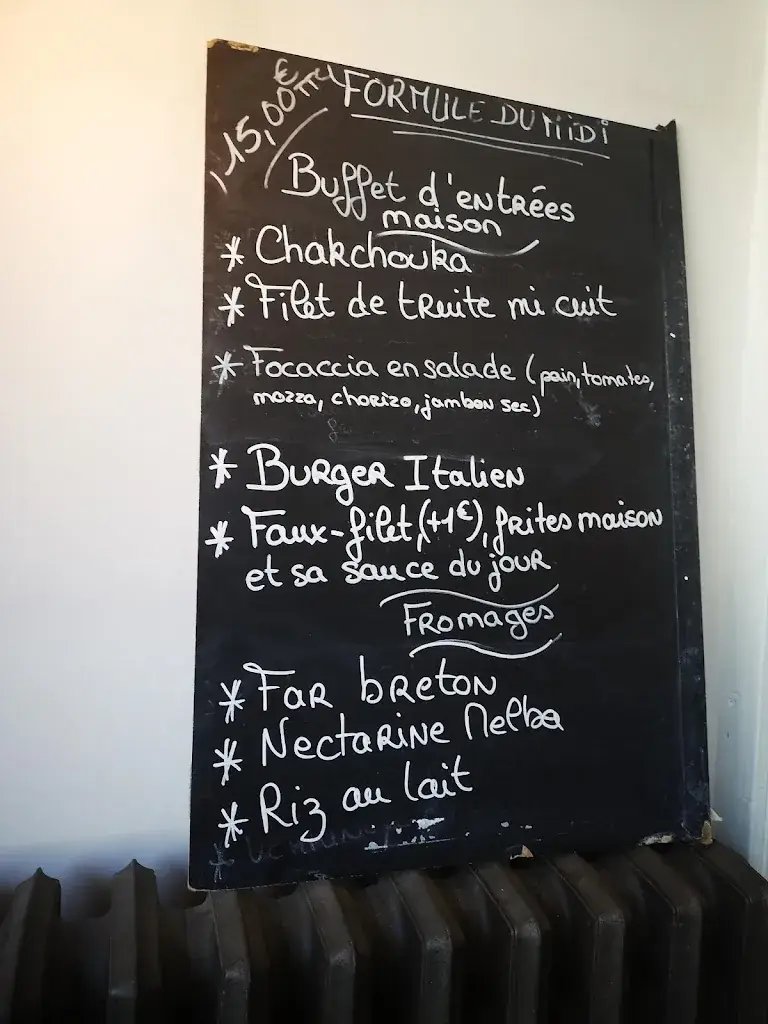 15,00€
FORMULE DU MIDI
Buffet d'entrées
maison
* Chakchouka
* Filet de truite mi cuit
* Focaccia en salade (pain, tomates,
mozza, chorizo, jambon sec)
* Burger Italien
* Faux-filet (+1€), frites maison
et sa sauce du jour
Fromages
* Far breton
* Nectarine Melba
* Riz au lait